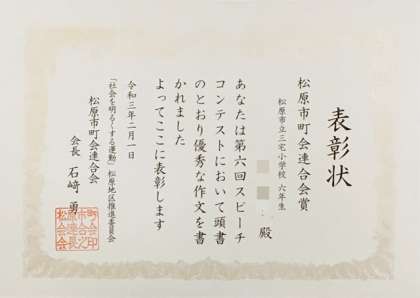 表彰状
松原市町会連合会賞
松原市立三宅小学校 六年生
殿
あなたは第六回スピーチ
コンテストにおいて頭書
のとおり優秀な作文を書
かれました
よってここに表彰します
令和三年二月一日
「社会を明るくする運動」松原地区推進委員会
松原市町会連合会
会長 石﨑 勇